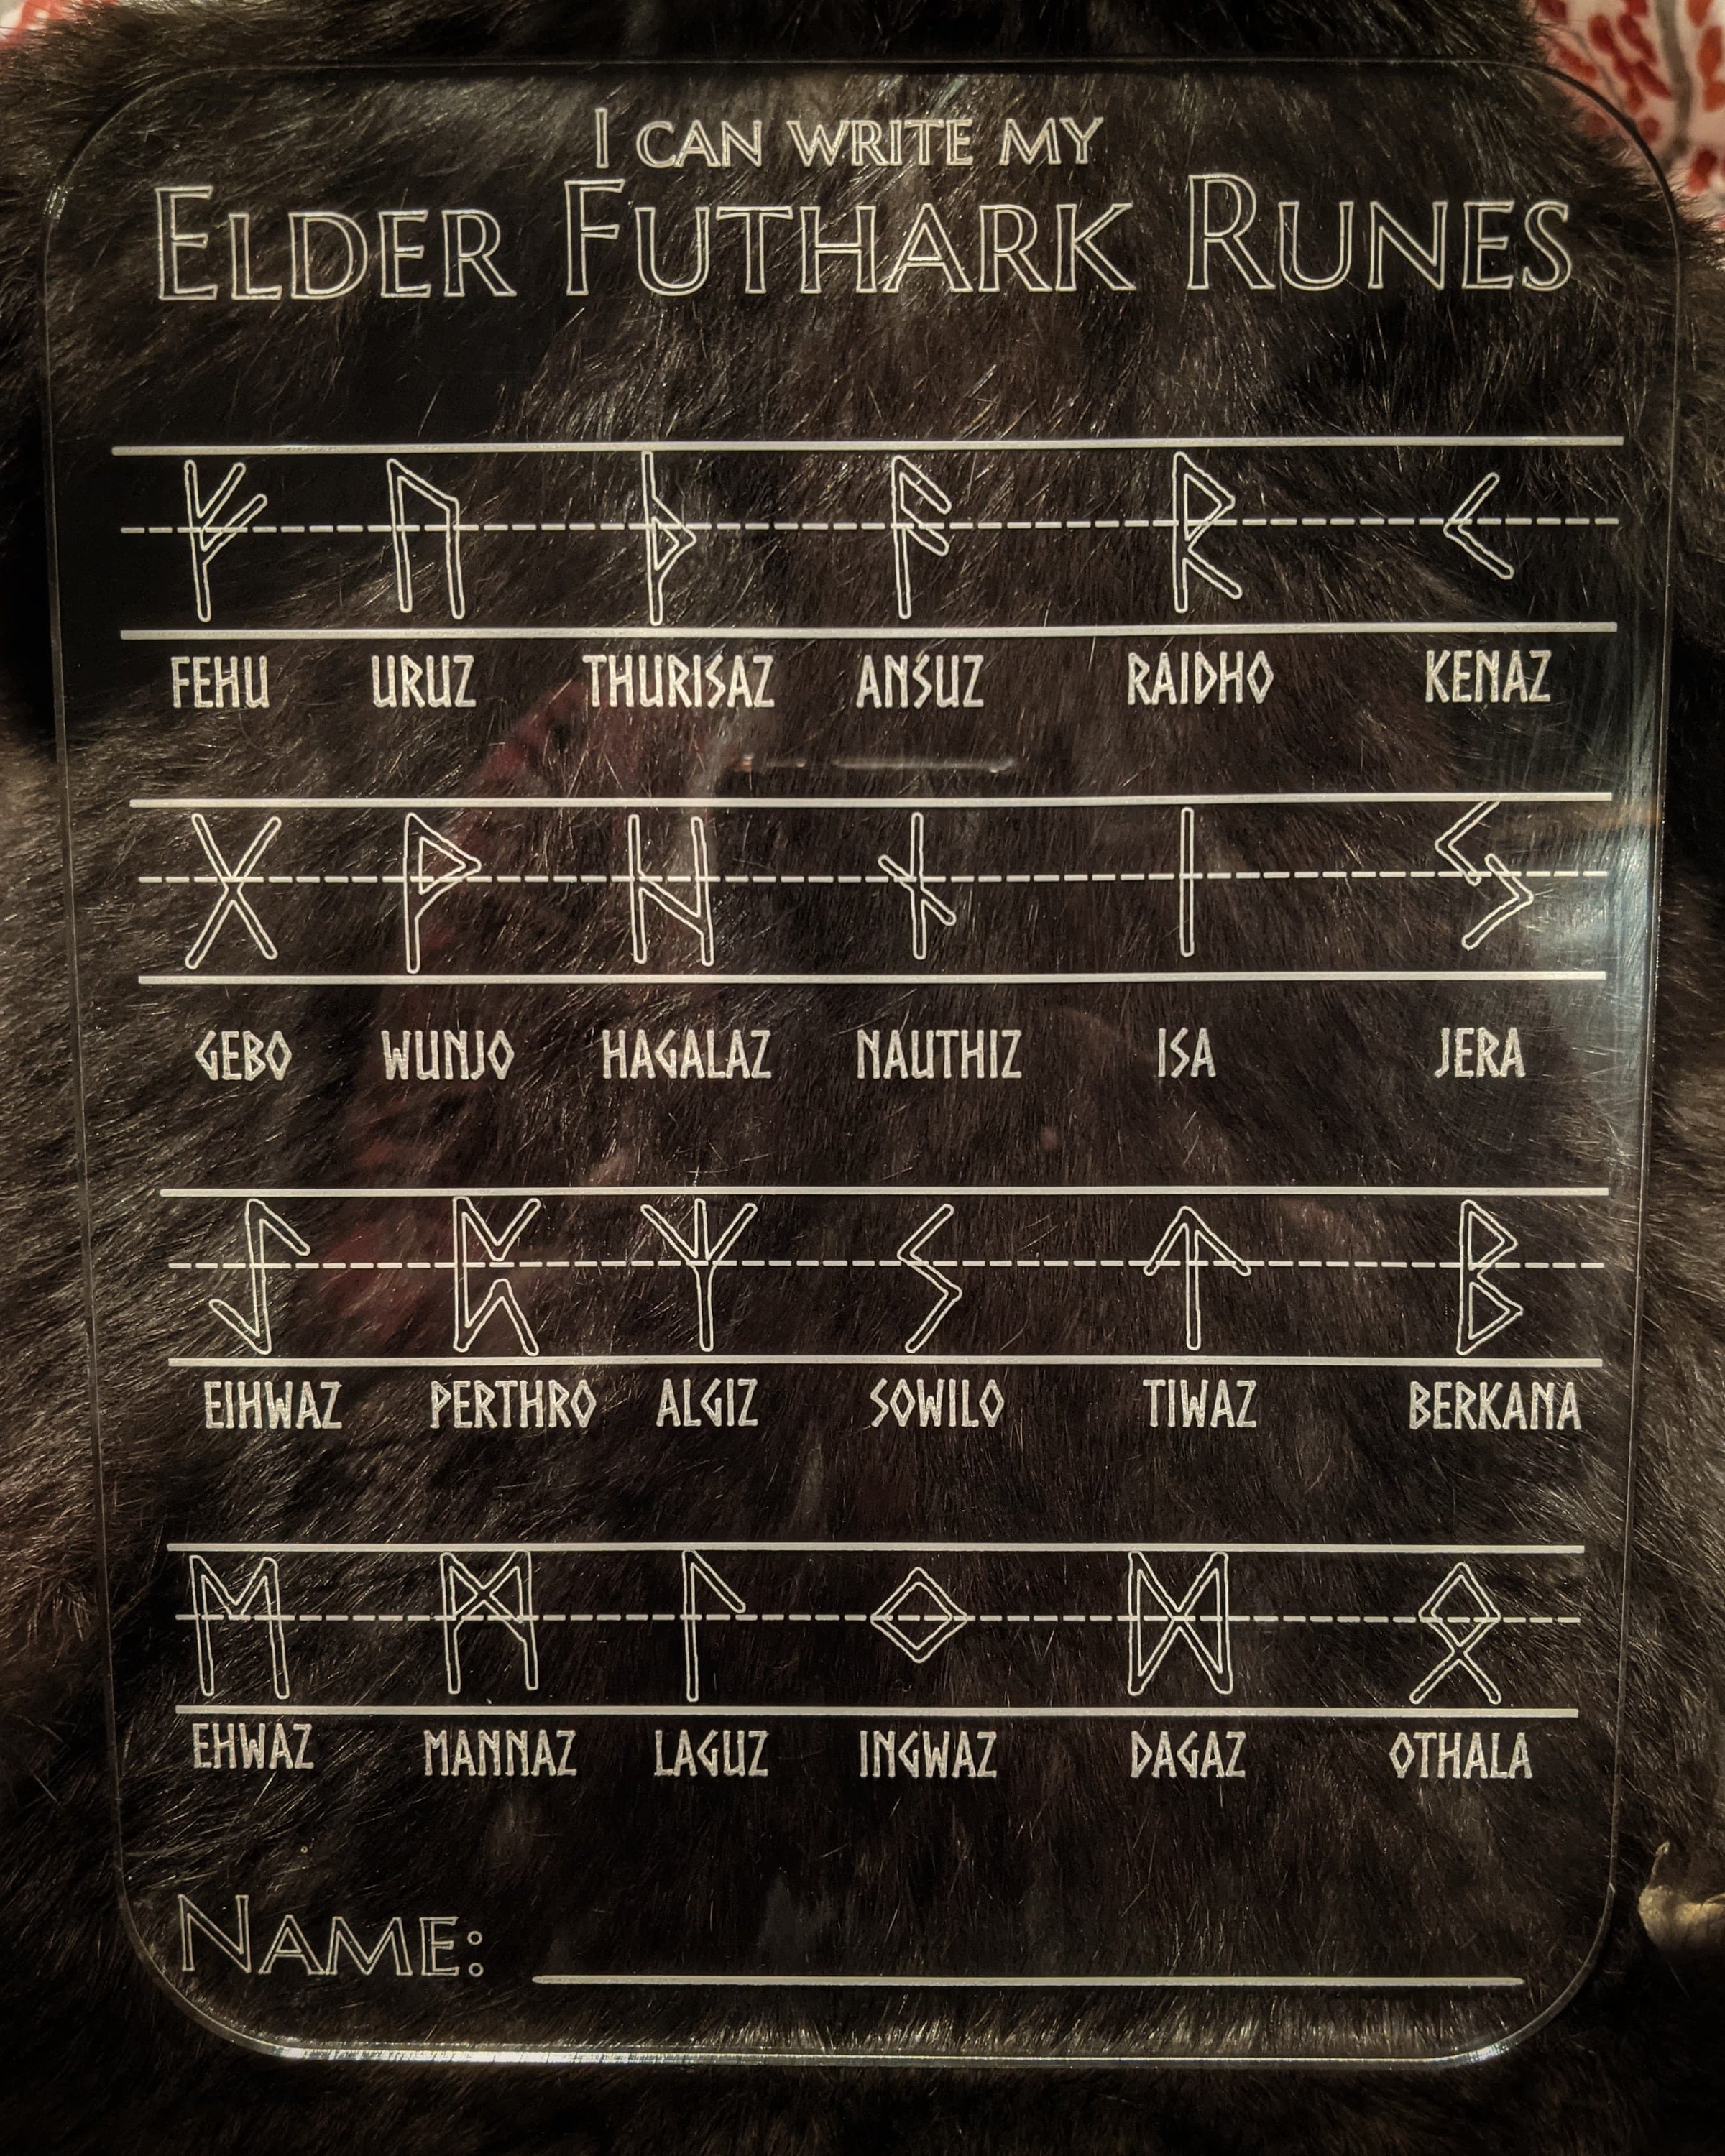 I CAN WRITE MY
ELDER FUTHARK RUNES
ᚠ ᚢ ᚦ ᚨ ᚱ ᚲ
FEHU URUZ THURISAZ ANSUZ RAIDHO KENAZ
ᚷ ᚹ ᚺ ᚾ ᛁ ᛃ
GEBO WUNJO HAGALAZ NAUTHIZ ISA JERA
ᛇ ᛈ ᛉ ᛊ ᛏ ᛒ
EIHWAZ PERTHRO ALGIZ SOWILO TIWAZ BERKANA
ᛖ ᛗ ᛚ ᛜ ᛞ ᛟ
EHWAZ MANNAZ LAGUZ INGWAZ DAGAZ OTHALA
NAME: